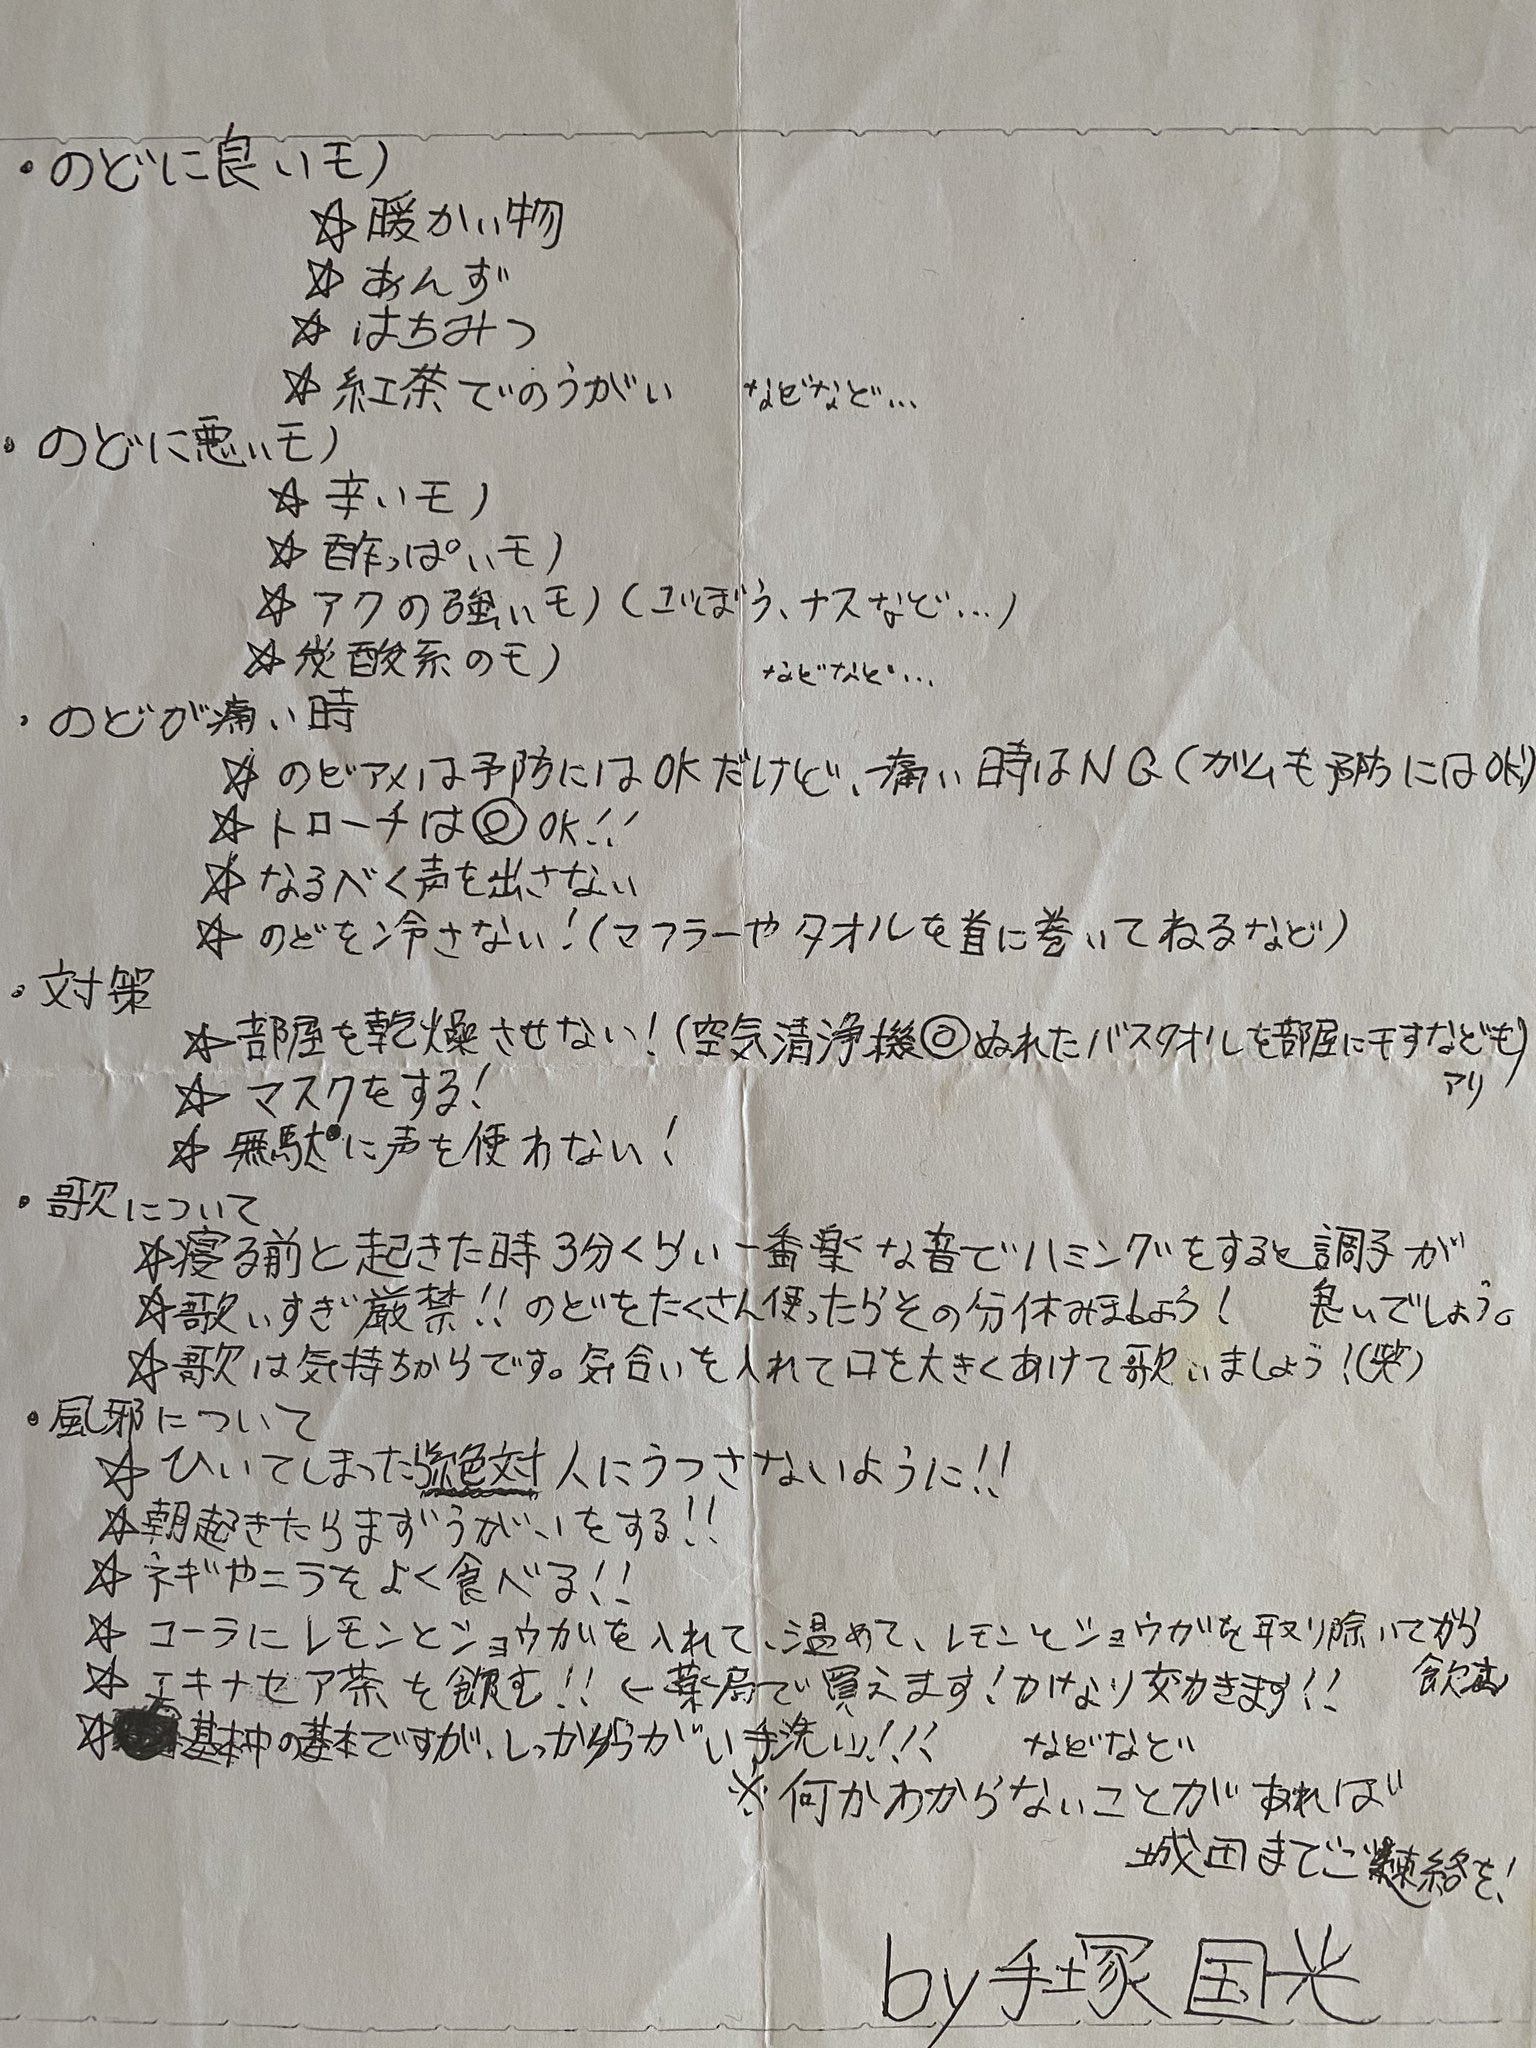 ・のどに良いモノ
☆暖かい物
☆あんず
☆はちみつ
☆紅茶でのうがい　などなど…
・のどに悪いモノ
☆辛いモノ
☆酢っぱいモノ
☆アクの強いモノ(ごぼう、ナスなど…)
☆炭酸系のモノ　などなど…
・のどが痛い時
☆のどアメは予防にはOKだけど、痛い時はNG(ガムも予防にはOK)
☆トローチは◎OK!!
☆なるべく声を出さない
☆のどを冷さない!(マフラーやタオルを首に巻いてねるなど)
・対策
☆部屋を乾燥させない!(空気清浄機◎ぬれたバスタオルを部屋にモすなども)
アリ
☆マスクをする!
☆無駄に声を使わない!
・歌について
☆寝る前と起きた時3分くらい一番楽な音でハミングをすると調子が
良いでしょう。
☆歌いすぎ厳禁!!のどをたくさん使ったらその分休みましょう!
☆歌は気持ちからです。気合いを入れて口を大きくあけて歌いましょう!(笑)
・風邪について
☆ひいてしまったら絶対人にうつさないように!!
☆朝起きたらまずうがいをする!!
☆ネギやニラをよく食べる!!
☆コーラにレモンとショウガを入れて、温めて、レモンとショウガを取り除いてから
飲む
☆エキナセア茶を飲む!!←薬局で買えます!かなり効きます!!
☆基本中の基本ですが、しっかりうがい手洗い!!!　などなど
※何かわからないことがあれば
城田までご連絡を!
by手塚国光